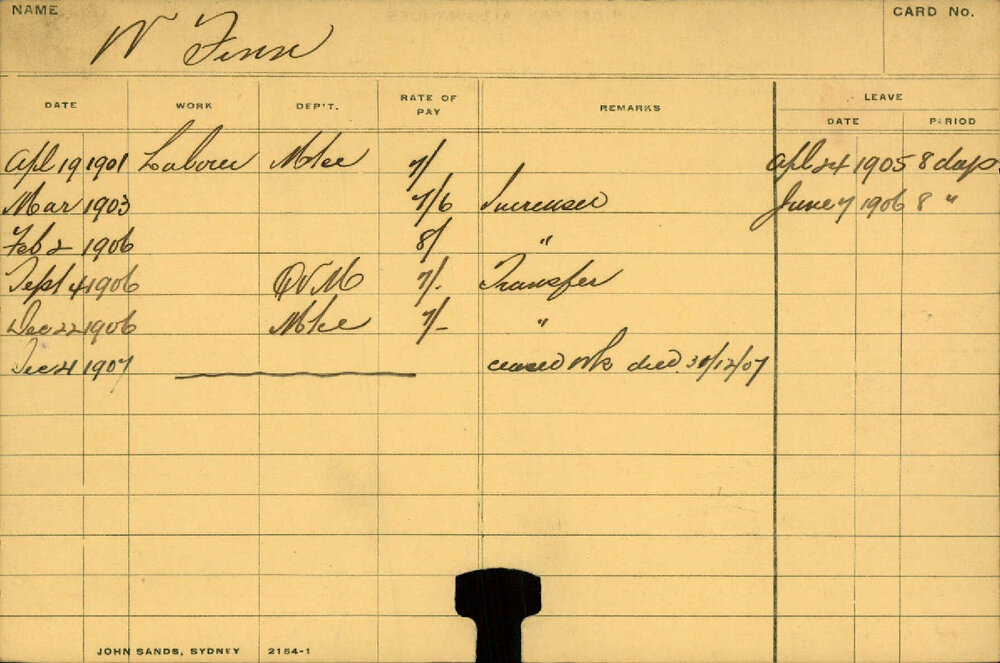 NAME W Finn CARD No.
DATE WORK DEP'T. RATE OF PAY REMARKS LEAVE
DATE PERIOD
Apl 19 1901 Laborer Mkee 7/ Apl 24 1905 8 days
Mar 1903 7/6 Increased June 7 1906 8 "
Feb 2 1906 8/ "
Sept 4 1906 QVM 7/- Transfer
Dec 22 1906 Mkee 7/- "
Dec 4 1907 ceased wk died 30/12/07
JOHN SANDS, SYDNEY 2154-1